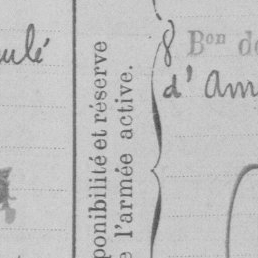 ulé
ponibilité et réserve
e l'armée active.
8 Bon de
d'Am